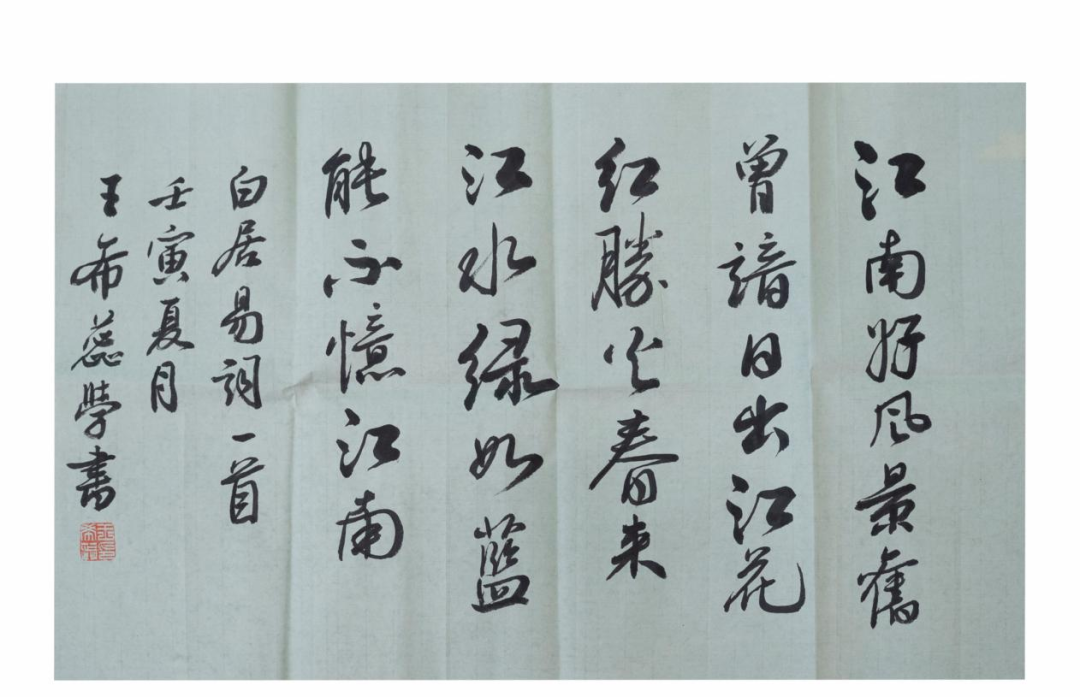 江南好风景舊
曾諳日出江花
红勝火春来
江水绿如藍
能不憶江南
白居易詞一首
壬寅夏月
王希蕊學書